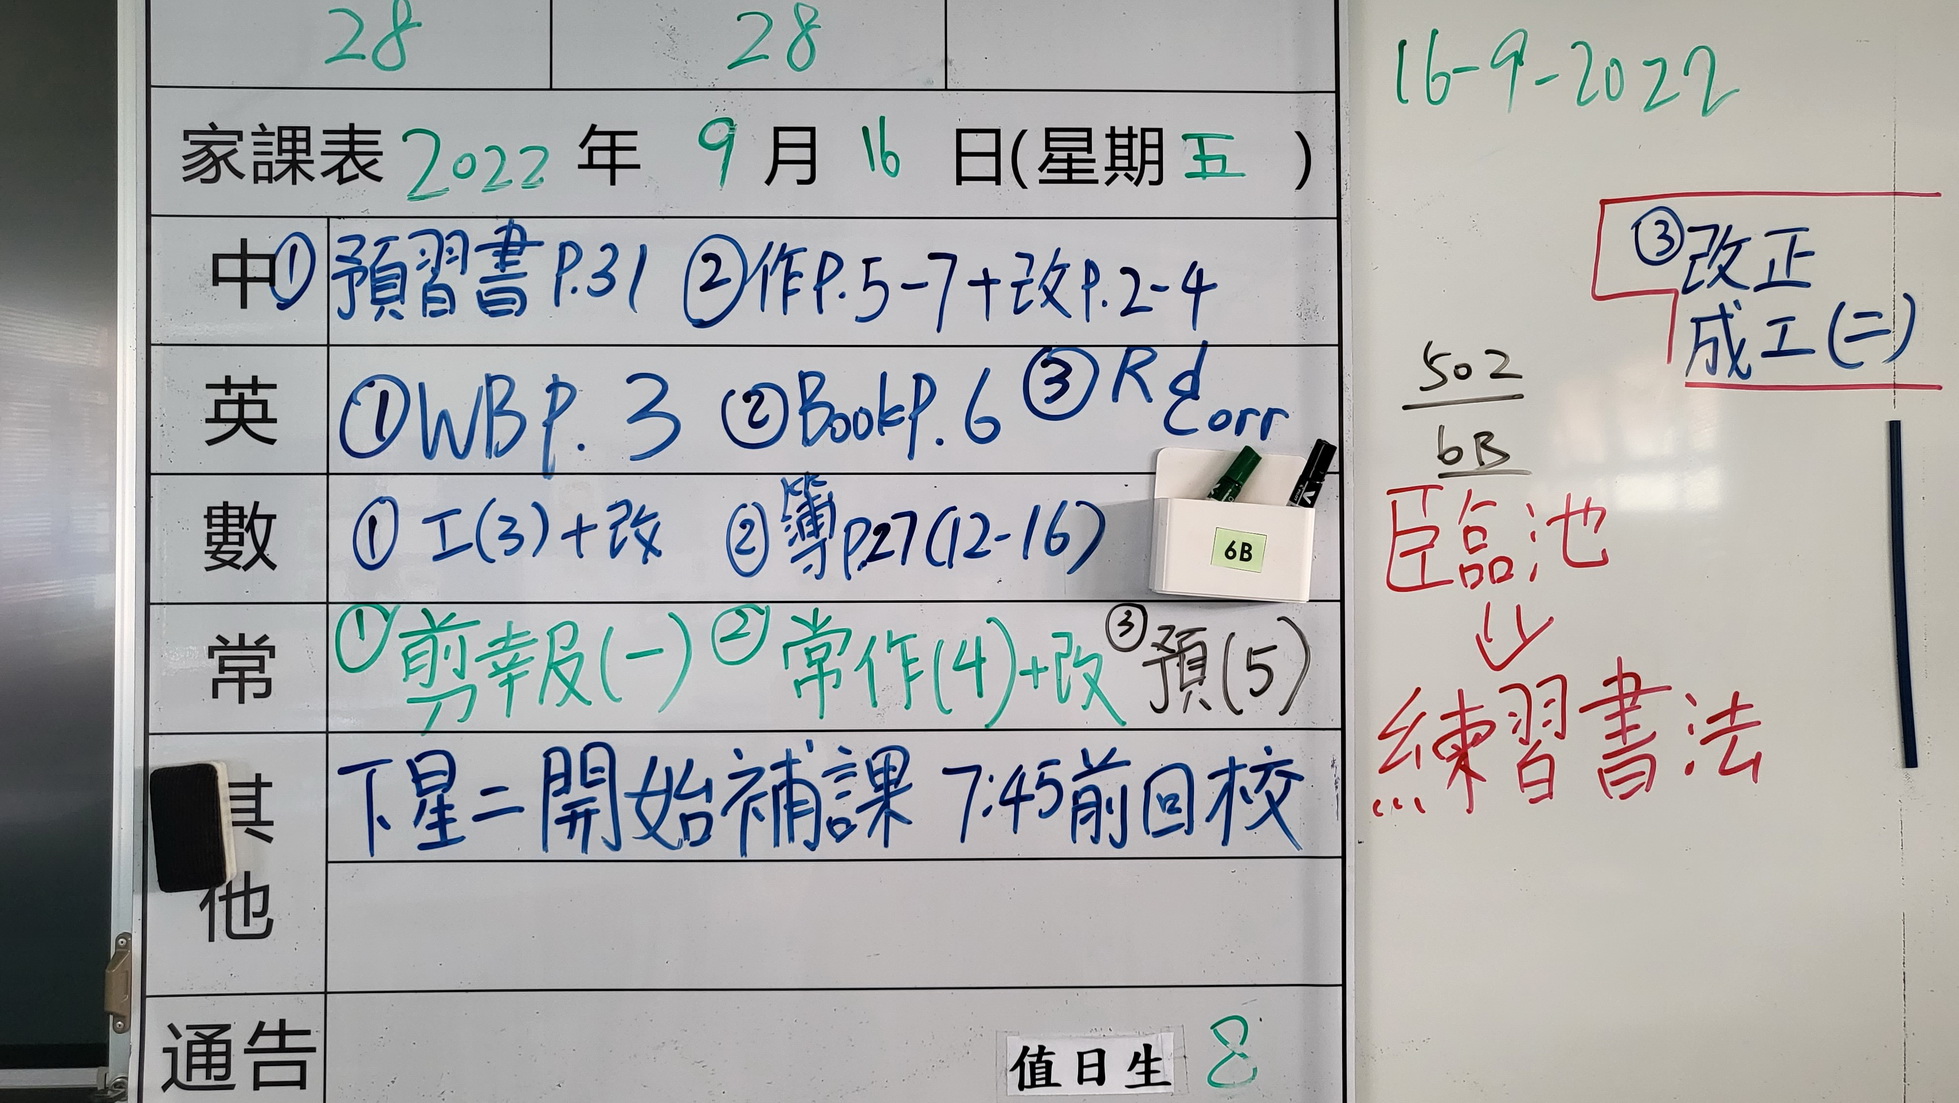 28 28
家課表 2022 年 9 月 16 日(星期 五 )
中 ① 預習書 P.31 ② 作 P.5-7+改 P.2-4
英 ① WB P. 3 ② Book P. 6 ③ Rd Corr
數 ① 工(3)+改 ② 簿 p.27(12-16)
6B
常 ① 剪報(一) ② 常作(4)+改 ③ 預(5)
其他 下星二開始補課 7:45前回校
通告
值日生 8
16-9-2022
③改正
成工(二)
502
6B
臨池
練習書法